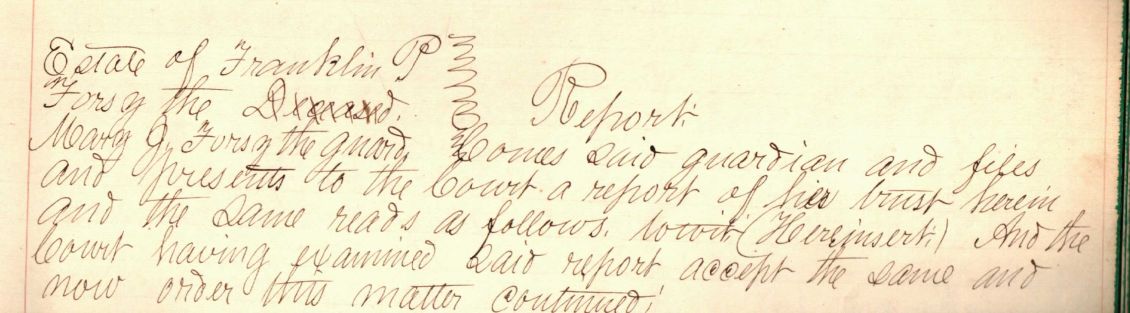 Estate of Franklin P
Forsythe Deceased.
Report.
Mary J. Forsythe guard. Comes said guardian and files
and presents to the Court a report of her trust herein
and the same reads as follows. towit: (Hereinsert.) And the
Court having examined said report accept the same and
now order this matter continued.